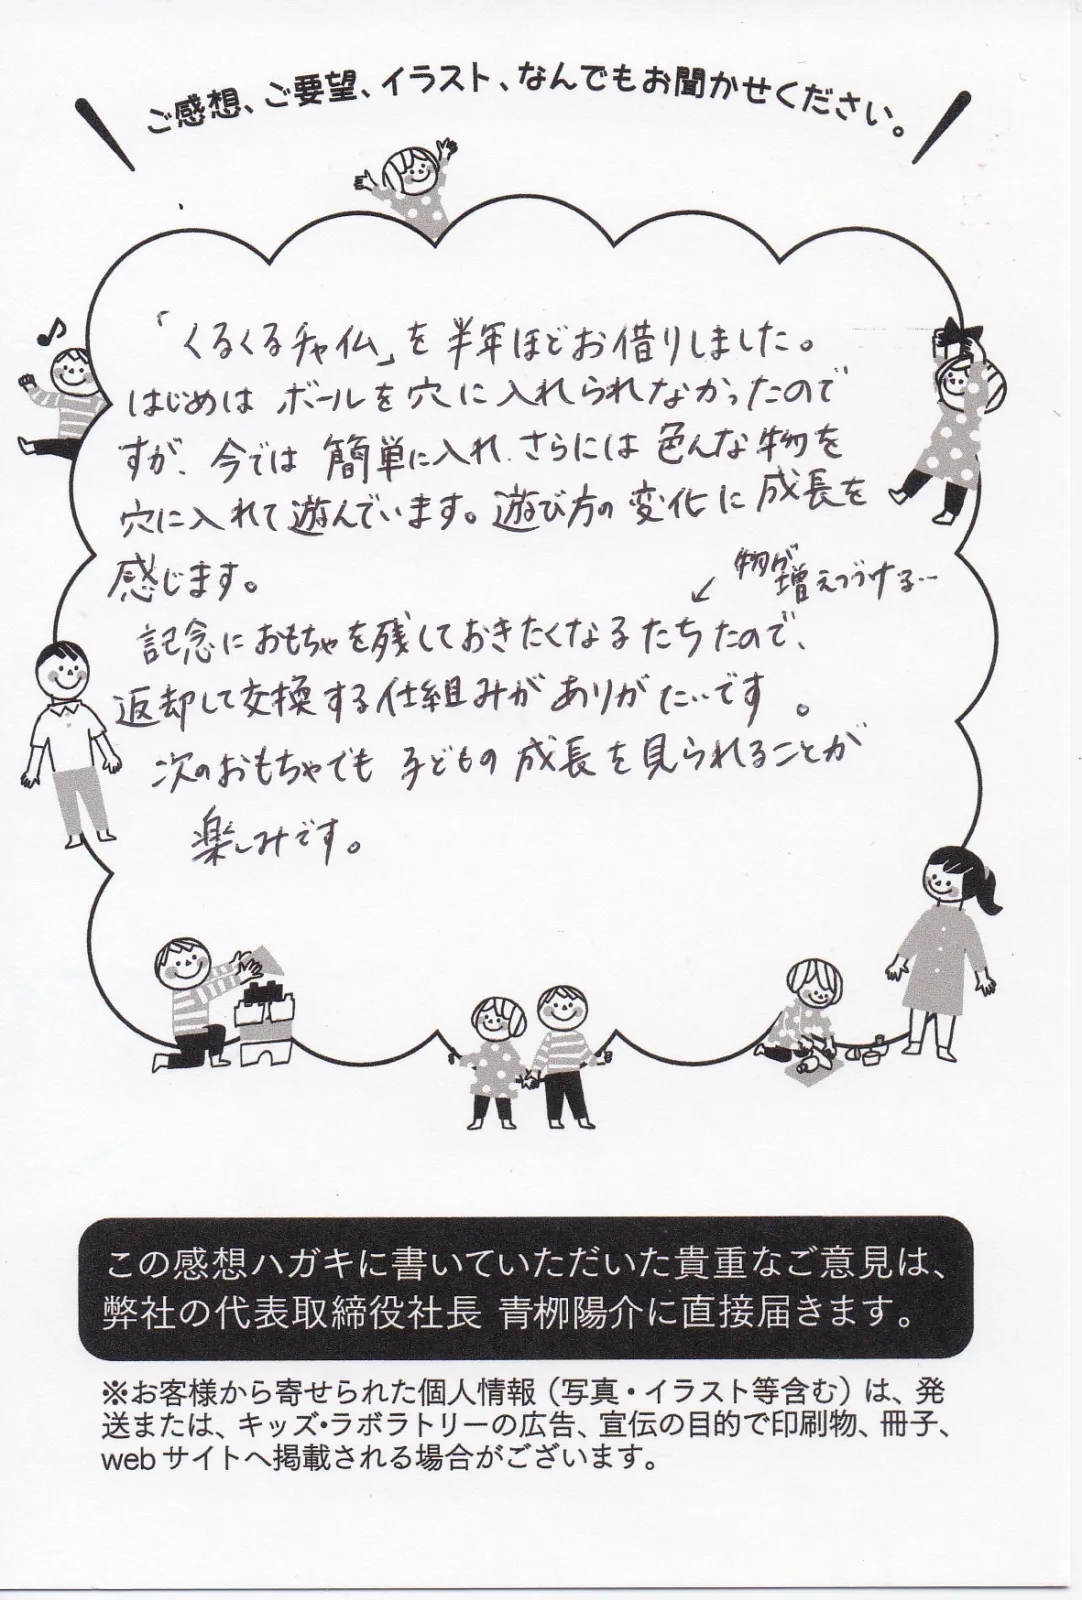 ご感想、ご要望、イラスト、なんでもお聞かせください。
「くるくるチャイム」を半年ほどお借りしました。
はじめは ボールを穴に入れられなかったので
すが、今では 簡単に入れ、さらには 色んな物を
穴に入れて遊んでいます。遊び方の変化に成長を
感じます。
物が増えつづける…
記念におもちゃを残しておきたくなるたちなので、
返却して交換する仕組みがありがたいです。
次のおもちゃでも 子どもの成長を見られることが
楽しみです。
この感想ハガキに書いていただいた貴重なご意見は、
弊社の代表取締役社長 青栁陽介に直接届きます。
※お客様から寄せられた個人情報（写真・イラスト等含む）は、発
送または、キッズ・ラボラトリーの広告、宣伝の目的で印刷物、冊子、
webサイトへ掲載される場合がございます。